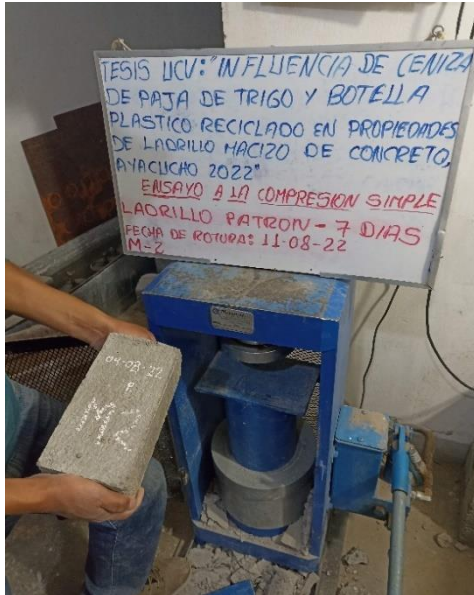 TESIS UCV: "INFLUENCIA DE CENIZA
DE PAJA DE TRIGO Y BOTELLA
PLASTICO RECICLADO EN PROPIEDADES
DE LADRILLO MACIZO DE CONCRETO,
AYACUCHO 2022"
ENSAYO A LA COMPRESION SIMPLE
LADRILLO PATRON - 7 DIAS
FECHA DE ROTURA: 11-08-22
M-2
04-08-22